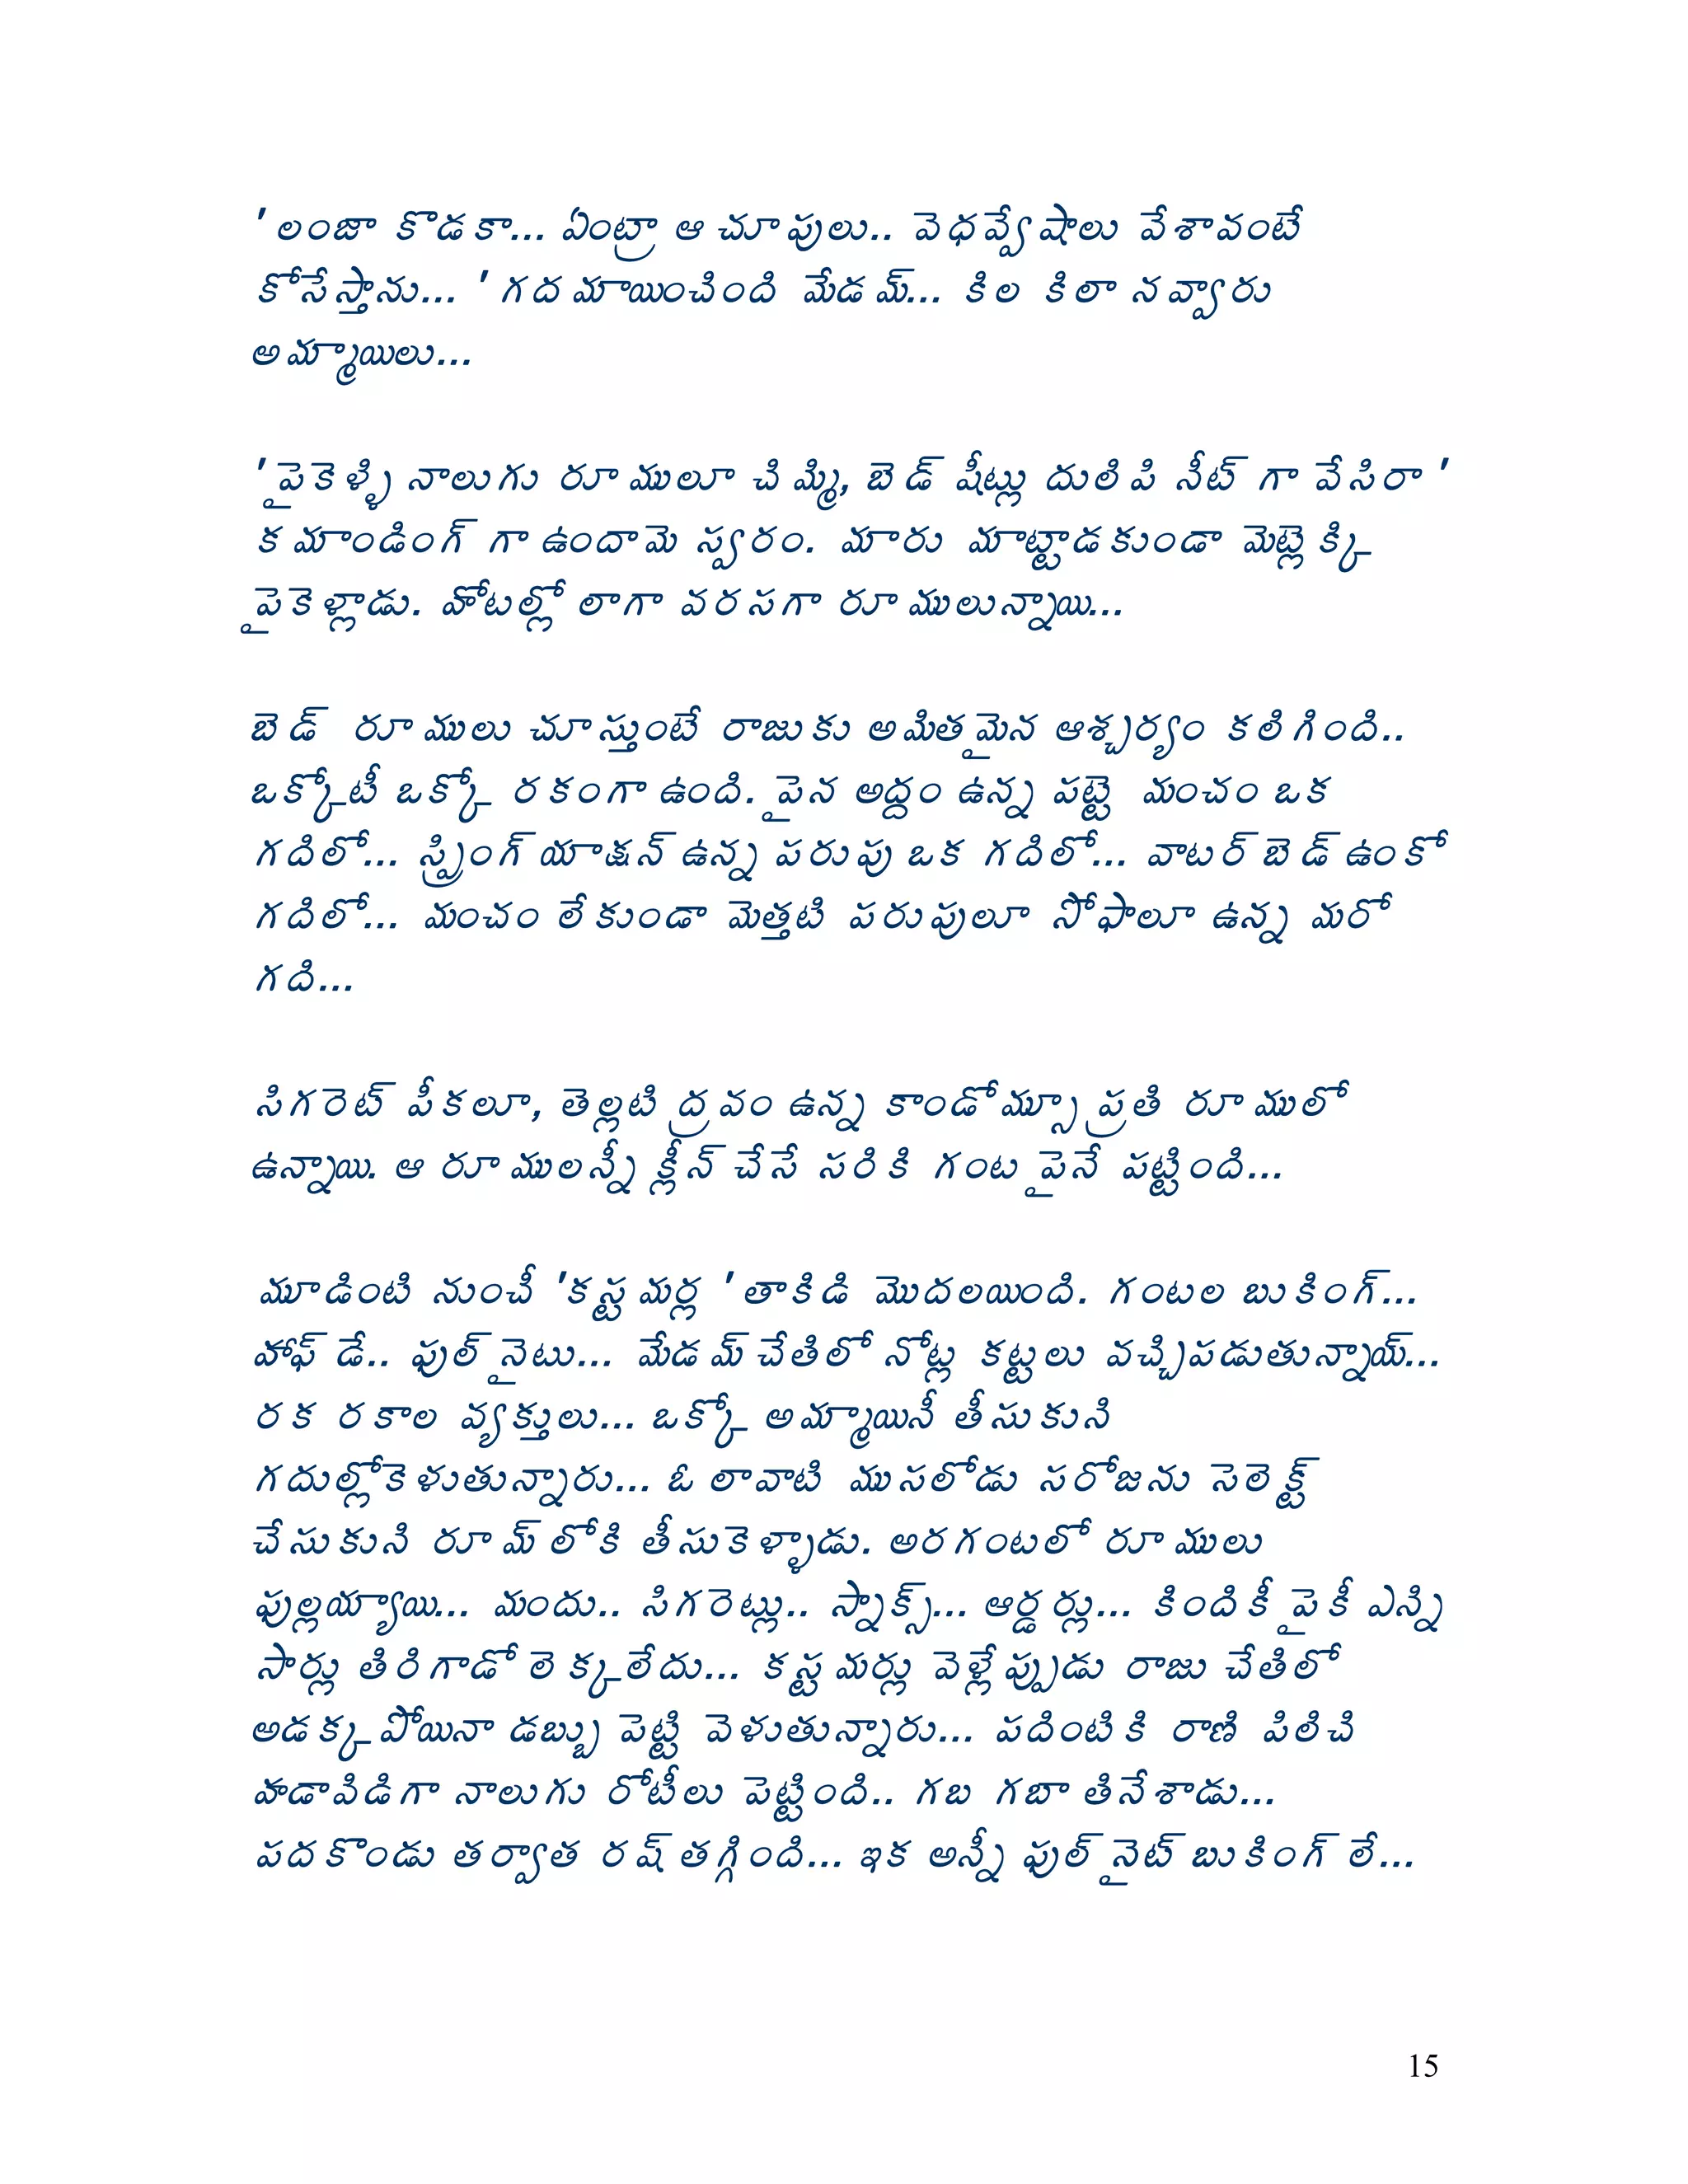 'లంజా కొడకా... ఏంట్రా ఆ చూపులు.. వెధవ్వేషాలు వేశావంటే
కోసేస్తాను... ' గదమాయించింది మేడమ్... కిల కిలా నవ్వారు
అమ్మాయిలు...
'పైకెళ్ళి నాలుగు రూములూ చిమ్మి, బెడ్ షీట్లు దులిపి నీట్ గా వేసిరా '
కమాండింగ్ గా ఉందామె స్వరం. మారు మాట్టాడకుండా మెట్లెక్కి
పైకెళ్లాడు. హోటల్లో లాగా వరసగా రూములున్నాయి...
బెడ్ రూములు చూస్తుంటే రాజుకు అమితమైన ఆశ్చర్యం కలిగింది..
ఒక్కోటీ ఒక్కో రకంగా ఉంది. పైన అద్దం ఉన్న పట్టె మంచం ఒక
గదిలో... స్ప్రింగ్ యాక్షన్ ఉన్న పరుపు ఒక గదిలో... వాటర్ బెడ్ ఉంకో
గదిలో... మంచం లేకుండా మెత్తటి పరుపులూ సోఫాలూ ఉన్న మరో
గది...
సిగరెట్ పీకలూ, తెల్లటి ద్రవం ఉన్న కాండోమ్సూ ప్రతి రూములో
ఉన్నాయి. ఆ రూములన్నీ క్లీన్ చేసే సరికి గంట పైనే పట్టింది...
మూడింటి నుంచీ 'కస్టమర్ల ' తాకిడి మొదలయింది. గంటల బుకింగ్...
హాఫ్ డే.. ఫుల్ నైటు... మేడమ్ చేతిలో నోట్ల కట్టలు వచ్చిపడుతున్నాయ్...
రక రకాల వ్యక్తులు... ఒక్కో అమ్మాయినీ తీసుకుని
గదుల్లోకెళుతున్నారు... ఓ లావాటి ముసలోడు సరోజను సెలెక్ట్
చేసుకుని రూమ్ లోకి తీసుకెళ్ళాడు. అరగంటలో రూములు
ఫుల్లయ్యాయి... మందు.. సిగరెట్లు.. స్నాక్స్... ఆర్డర్లు... కిందికీ పైకీ ఎన్ని
సార్లు తిరిగాడో లెక్కలేదు... కస్టమర్లు వెళ్లేప్పుడు రాజు చేతిలో
అడక్కపోయినా డబ్బు పెట్టి వెళుతున్నారు... పదింటికి రాణి పిలిచి
హడావిడిగా నాలుగు రోటీలు పెట్టింది.. గబ గబా తినేశాడు...
పదకొండు తర్వాత రష్ తగ్గింది... ఇక అన్నీ ఫుల్ నైట్ బుకింగ్ లే...
15